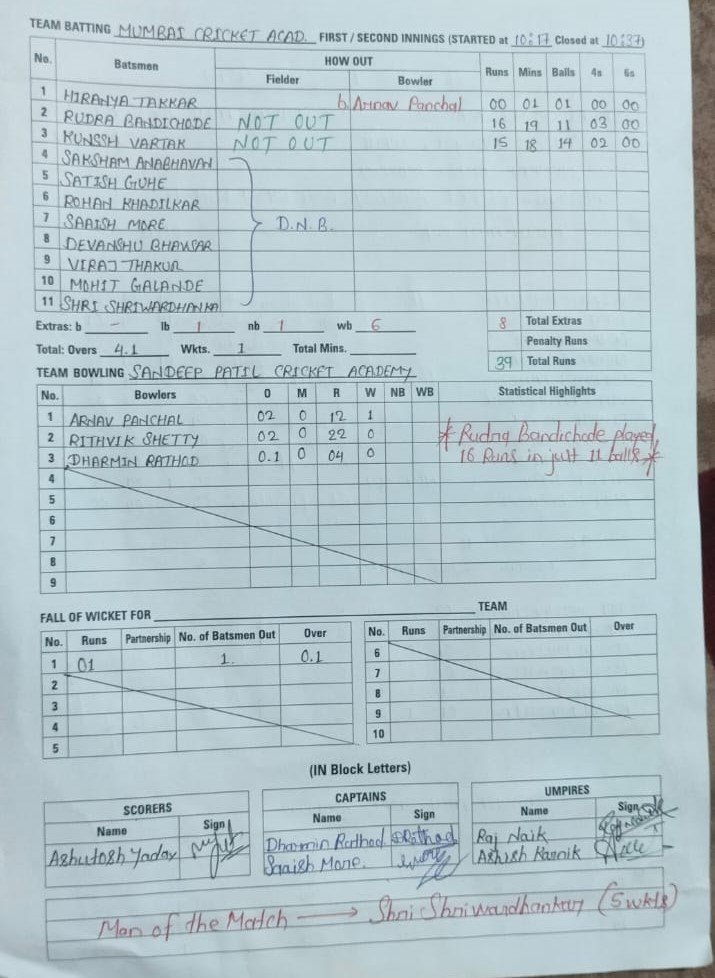 TEAM BATTING MUMBAI CRICKET ACAD. FIRST / SECOND INNINGS (STARTED at 10:17 Closed at 10:37)
No. Batsmen HOW OUT Runs Mins Balls 4s 6s
Fielder Bowler
1 HIRANYA TAKKAR b. Arnav Panchal 00 01 01 00 00
2 RUDRA BANDICHODE NOT OUT 16 19 11 03 00
3 KUNSSH VARTAK NOT OUT 15 18 14 02 00
4 SAKSHAM ANABHAVAN
5 SATISH GUHE
6 ROHAN KHADILKAR
7 SAAISH MORE D.N.B.
8 DEVANSHU BHAWSAR
9 VIRAJ THAKUR
10 MOHIT GALANDE
11 SHRI SHRIWARDHANKA
Extras: b - lb 1 nb 1 wb 6 8 Total Extras
Penalty Runs
Total: Overs 4.1 Wkts. 1 Total Mins. 39 Total Runs
TEAM BOWLING SANDEEP PATIL CRICKET ACADEMY
No. Bowlers O M R W NB WB Statistical Highlights
1 ARNAV PANCHAL 02 0 12 1
2 RITHVIK SHETTY 02 0 22 0 * Rudra Bandichode played
3 DHARMIN RATHOD 0.1 0 04 0 16 Runs in just 11 balls *
4
5
6
7
8
9
FALL OF WICKET FOR TEAM
No. Runs Partnership No. of Batsmen Out Over No. Runs Partnership No. of Batsmen Out Over
1 01 1. 0.1 6
2 7
3 8
4 9
5 10
(IN Block Letters)
SCORERS CAPTAINS UMPIRES
Name Sign Name Sign Name Sign
Ashutosh Yadav Dharmin Rathod DRathod Raj Naik
Saaish More. Ashish Karnik
Man of the Match → Shri Shriwardhankar (5 wkts)